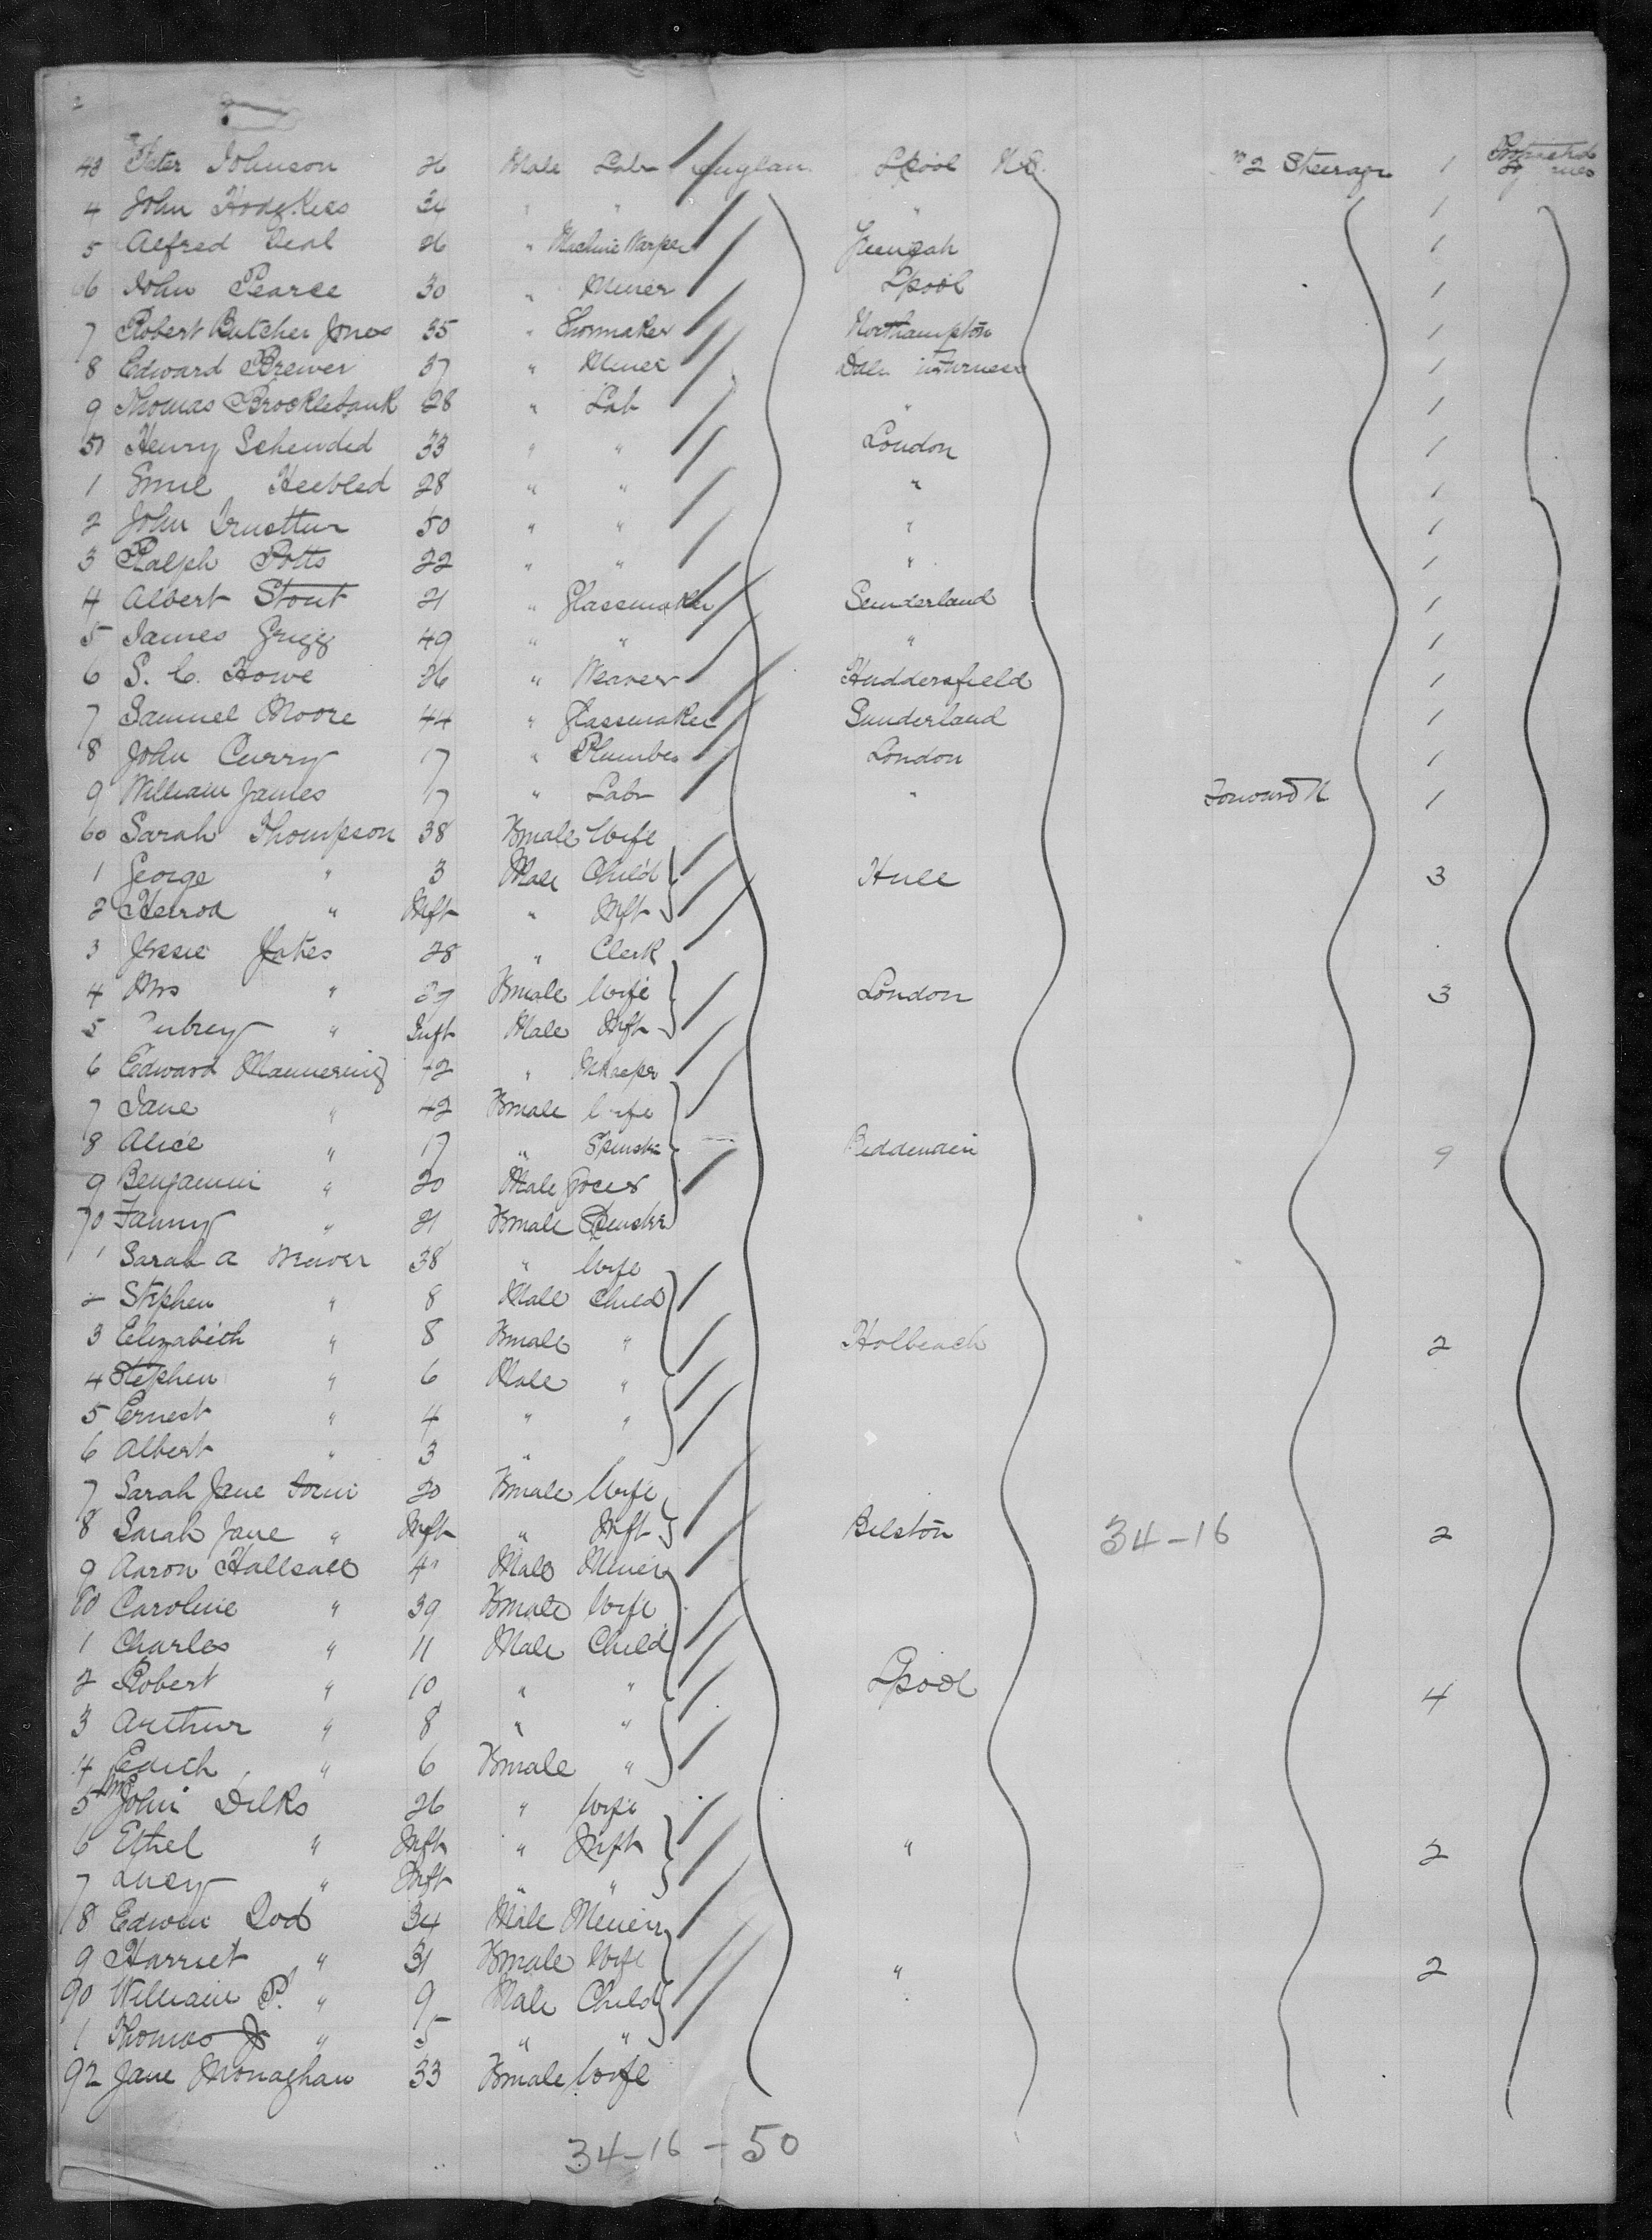 2
43 Peter Johnson 26 Male Labr Englan Lpool U.S. No 2 Steerage 1
4 John Hodgkies 34 " " " 1
5 Alfred Deal 26 " Machine 1
46 John Pearce 30 " Miner Lpool 1
7 Robert Butcher Jones 35 " Shoemaker Northampton 1
8 Edward Brewer 37 " Miner Dalton in Furness 1
9 Thomas Brocklebank 28 " Lab " 1
50 Henry Schended 33 " " London 1
1 Emil Heebled 28 " " " 1
2 John 50 " " " 1
3 Ralph Potts 22 " " " 1
4 Albert Stout 21 " Glassmaker Sunderland 1
5 James Grigg 49 " " " 1
6 S. C. Howe 26 " Weaver Huddersfield 1
7 Samuel Moore 44 " Glassmaker Sunderland 1
8 John Curry 17 " Plumber London 1
9 William James 17 " Labr " 1
60 Sarah Thompson 38 Fmale Wife
1 George " 3 Male Child Hull 3
2 " Inft " Inft
3 Jessie 28 " Clerk
4 Mrs " 29 Fmale Wife London 3
5 " Inft Male Inft
6 Edward Mannering 42 "
7 Jane " 42 Fmale Wife
8 Alice " 17 " Spinster 9
9 Benjamin " 20 Male Grocer
70 Fanny " 21 Fmale Spinster
1 Sarah A 38 " Wife
2 Stephen " 8 Male Child
3 Elizabeth " 8 Fmale " Holbeach 2
4 Stephen " 6 Male "
5 Ernest " 4 " "
6 Albert " 3 "
7 Sarah Jane 20 Fmale Wife
8 Sarah Jane " Inft " Inft Bilston 34-16 2
9 Aaron Hallsall 41 Male Miner
80 Caroline " 39 Fmale Wife
1 Charles " 11 Male Child
2 Robert " 10 " " Lpool 4
3 Arthur " 8 " "
4 Edith " 6 Fmale "
5 Mrs John Dilks 26 " Wife
6 Ethel " Inft " Inft " 2
7 Lucy " Inft " "
8 Edwin Dod 34 Male Miner
9 Harriet " 31 Fmale Wife " 2
90 William P. " 9 Male Child
1 Thomas J " 5 " "
92 Jane Monaghan 33 Fmale Wife
34-16-50